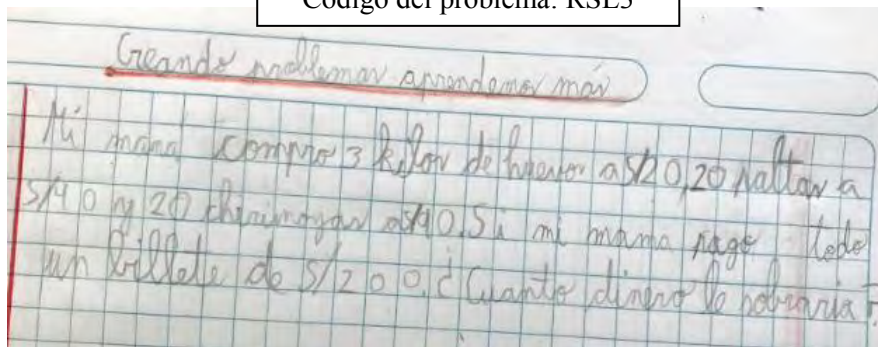 Código del problema: RSL3
Creando problemas aprendemos más
Mi mamá compro 3 kilos de huevos a S/20,20 paltas a
S/40 y 20 chirimoyas a S/40. Si mi mama pago todo
un billete de S/200. ¿Cuanto dinero le sobraria?